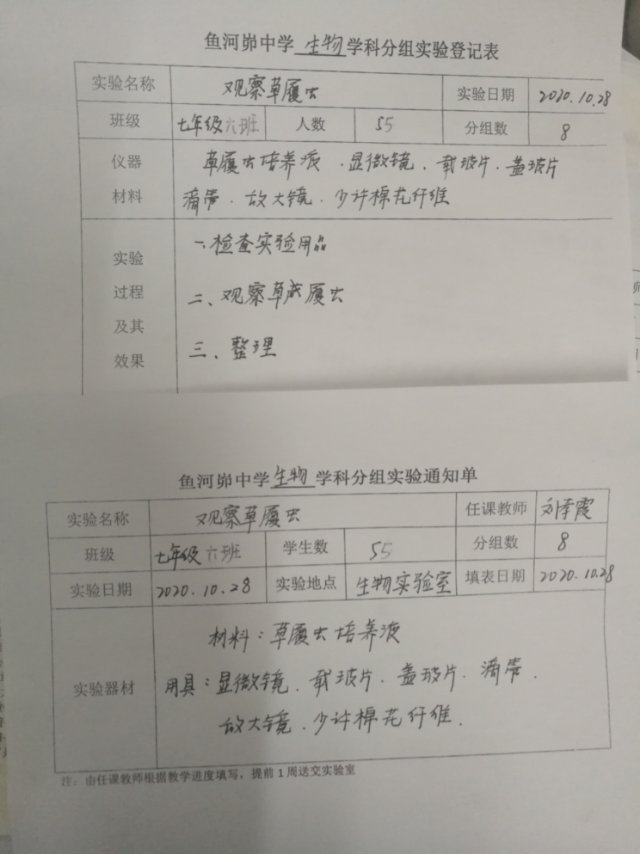 鱼河峁中学 生物 学科分组实验登记表
实验名称 观察草履虫 实验日期 2020.10.28
班级 七年级六班 人数 55 分组数 8
仪器 草履虫培养液．显微镜、载玻片．盖玻片
材料 滴管．放大镜．少许棉花纤维
一．检查实验用品
实验
二、观察草履虫
过程
及其
三．整理
效果
鱼河峁中学生物 学科分组实验通知单
实验名称 观察草履虫 任课教师
班级 七年级六班 学生数 55 分组数 8
实验日期 2020.10.28 实验地点 生物实验室 填表日期 2020.10.28
材料：草履虫培养液
实验器材 用具：显微镜．载玻片．盖玻片．滴管．
放大镜．少许棉花纤维．
注：由任课教师根据教学进度填写，提前1周送交实验室